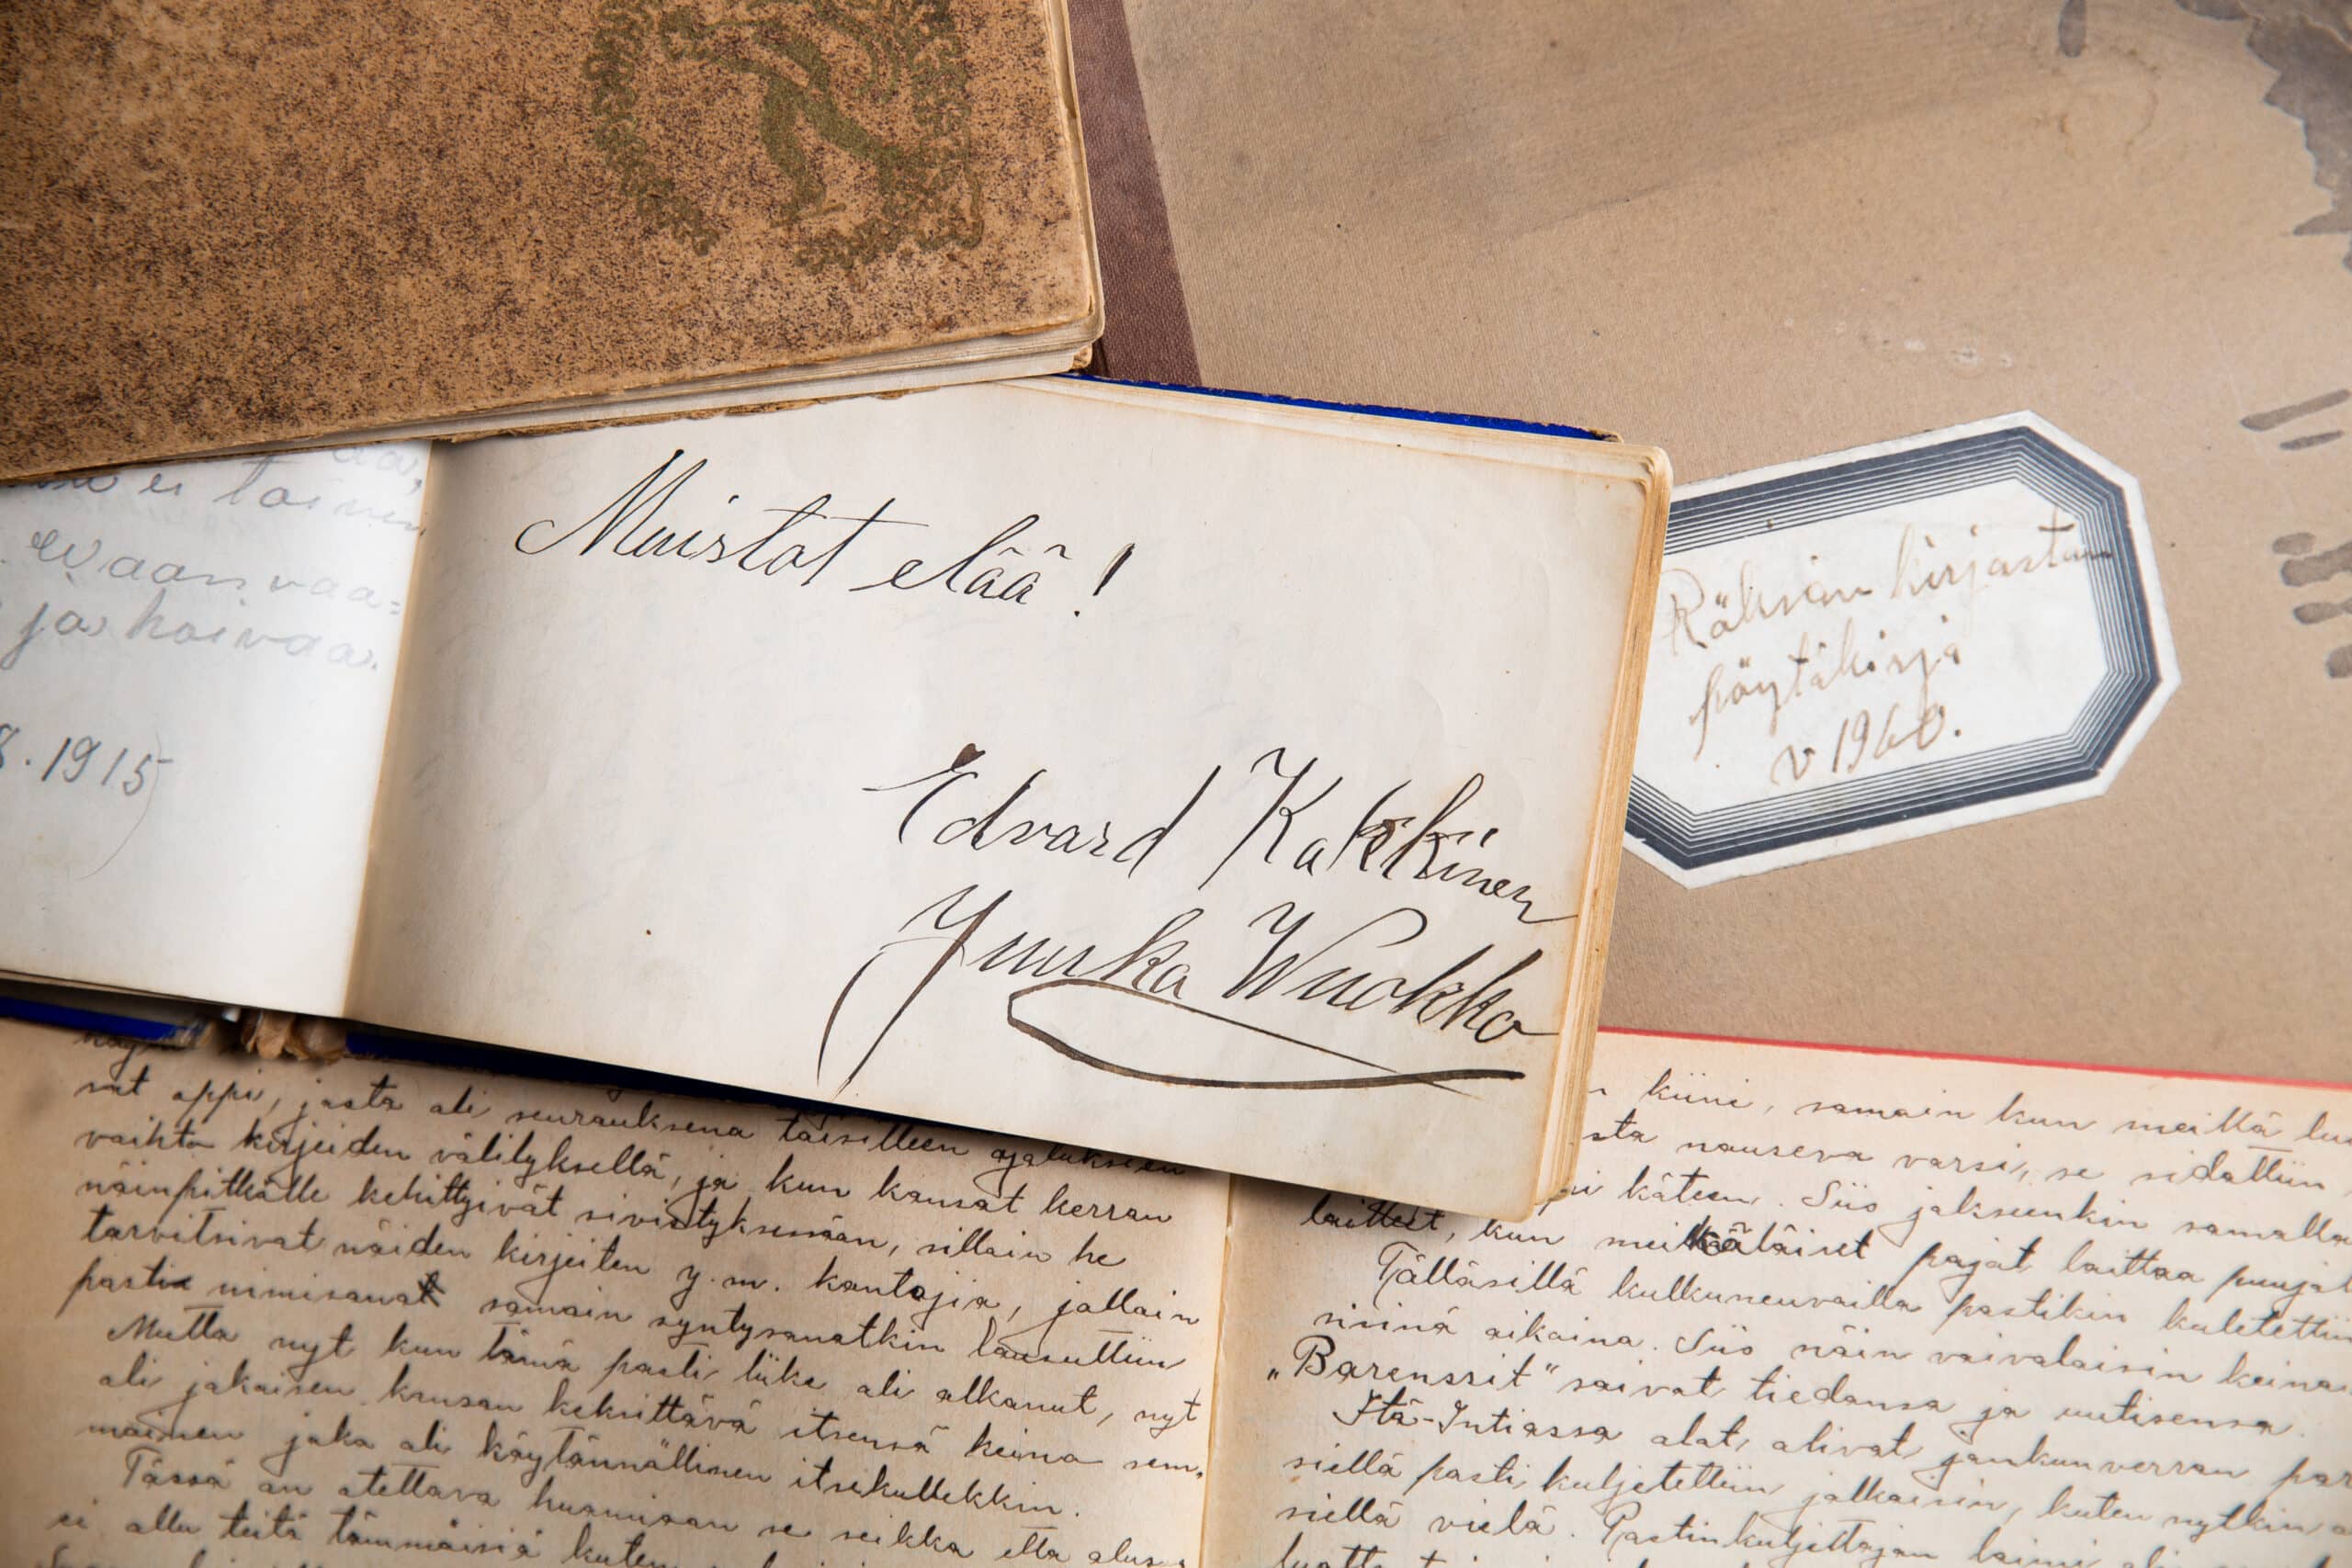 ei toinen
waan vaa=
ja hoivaa.
8.1915
Muistot elää!
Edvard Kakkinen
Juuska Wuokko
kirjaston
pöytäkirja
v 1960.
vat oppi, josta oli seurauksena täisilleen ajatuksien
vaihto kirjeiden välityksellä, ja kun kansat kerran
näinpitkälle kehittyivät sivistyksessään, silloin he
tarvitsivat näiden kirjeiten y.m. kantajia, jolloin
posti nimisanat samoin syntysanatkin lausuttiin
Mutta nyt kun tämä posti liike oli alkanut, nyt
oli jokaisen kansan keksittävä itsensä keino sem-
moinen joka oli käytännöllinen itsekullekkin.
Tässä on otettava huomioon se seikka että
ei ollu teitä tämmöisiä kuten
kiini, samoin kun meillä
sta nouseva varsi, se sidottiin
käteen. Siis jokseenkin samalla
laitteet, kun meikäläiset pojat laittaa
Tälläsillä kulkuneuvoilla postikin kuletettiin
niinä aikoina. Siis näin vaivaloisin keino
„Barenssit" saivat tiedonsa ja uutisensa.
Itä-Intiassa olot, olivat jonkunverran
siellä posti kuljetettiin jalkaisin, kuten nytkin
siellä vielä. Postinkuljettajan